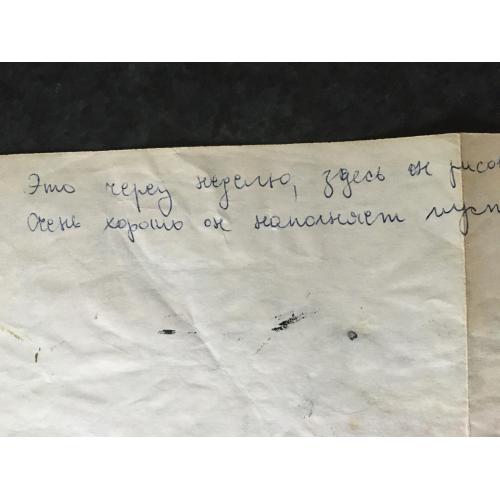 Это через неделю, здесь он рисов
Очень хорошо он наполняет пуст